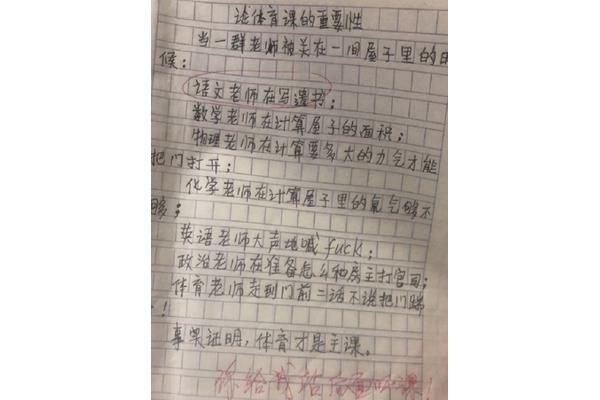 论体育课的重要性
当一群老师被关在一间屋子里的时
候：
语文老师在写遗书；
数学老师在计算屋子的面积；
物理老师在计算要多大的力气才能
把门打开；
化学老师在计算屋子里的氧气够不
够；
英语老师大声地喊fuck；
政治老师在准备怎么和房主打官司；
体育老师走到门前二话不说把门踹
！
事实证明，体育才是主课。
你给我站 听课！